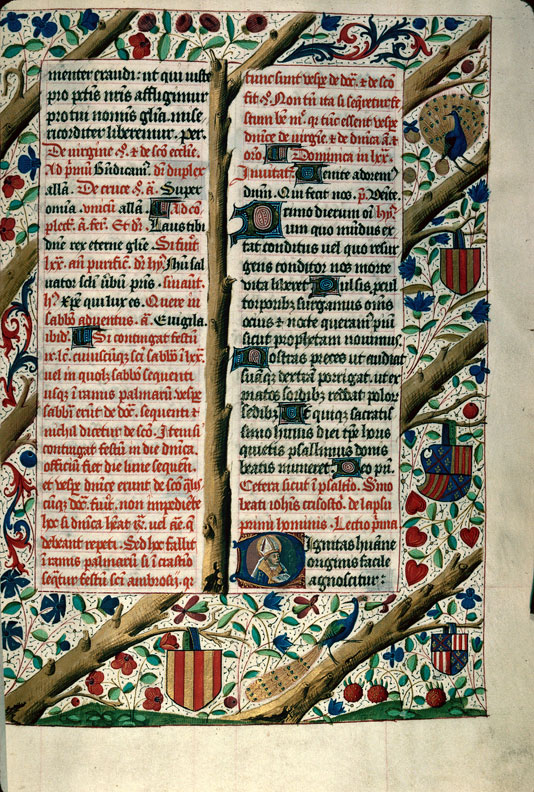 menter exaudi: ut qui iuste
pro pctis nris affligimur
pro tui nominis glia mise
ricorditer liberemur. per.
De virgine
Ad pmu Bndicam. dn duplex
alla. De cruce Super
omia. vnicu alla. Ad co
plet. Laus tibi
dne rex eterne glie. Si fuit
lxx. an purific. Nu sal
uator scti sibu pris. finaut.
Xpe qui lux es. Quere in
sabbo aduentus. Euigila
ibid. Si contingat festu
vel in quolz sabbo sequenti
usqz i ramis palmaru vespe
sabbi erut de sequenti et
nichil dicetur de sco. Item si
contingat festu in die dnica.
officiu fiet die lune sequen.
et vespe dnice erunt de sco
fuit. non impediete
hoc si dnica vel
debeant repeti. Sed hoc fallit
i ramis palmaru si i crastio
sequtur festu sci ambrosij.
tunc sunt vespe de et de sco
fit Non tn ita si sequetur fe
stum be tuc essent vespe
dnice de virgie et de dnica
oro. Dominica in lxx.
Inuitat. Venite adorem
dnm. Qui fecit nos. Venite
Primo dierum oi
um quo mudus ex
tat conditus vel quo resur
gens conditor nos morte
vita liberet. Pulsis procul
torporibz surgamus oms
ocius et nocte queram piu
sicut prophetam nouimus.
Nostras preces ut audiat
suaqz dextra porrigat. ut ex
piatos sordibz reddat polor
sedibz. Ut quiqz sacratis
simo huius diei tpe horis
quietis psallimus donis
beatis muneret. Deo pri.
Cetera sicut i psalto. Smo
beati iohis crisosto. de lapsu
primi hominis. Lectio pma
Dignitas huane
originis facile
agnoscitur: